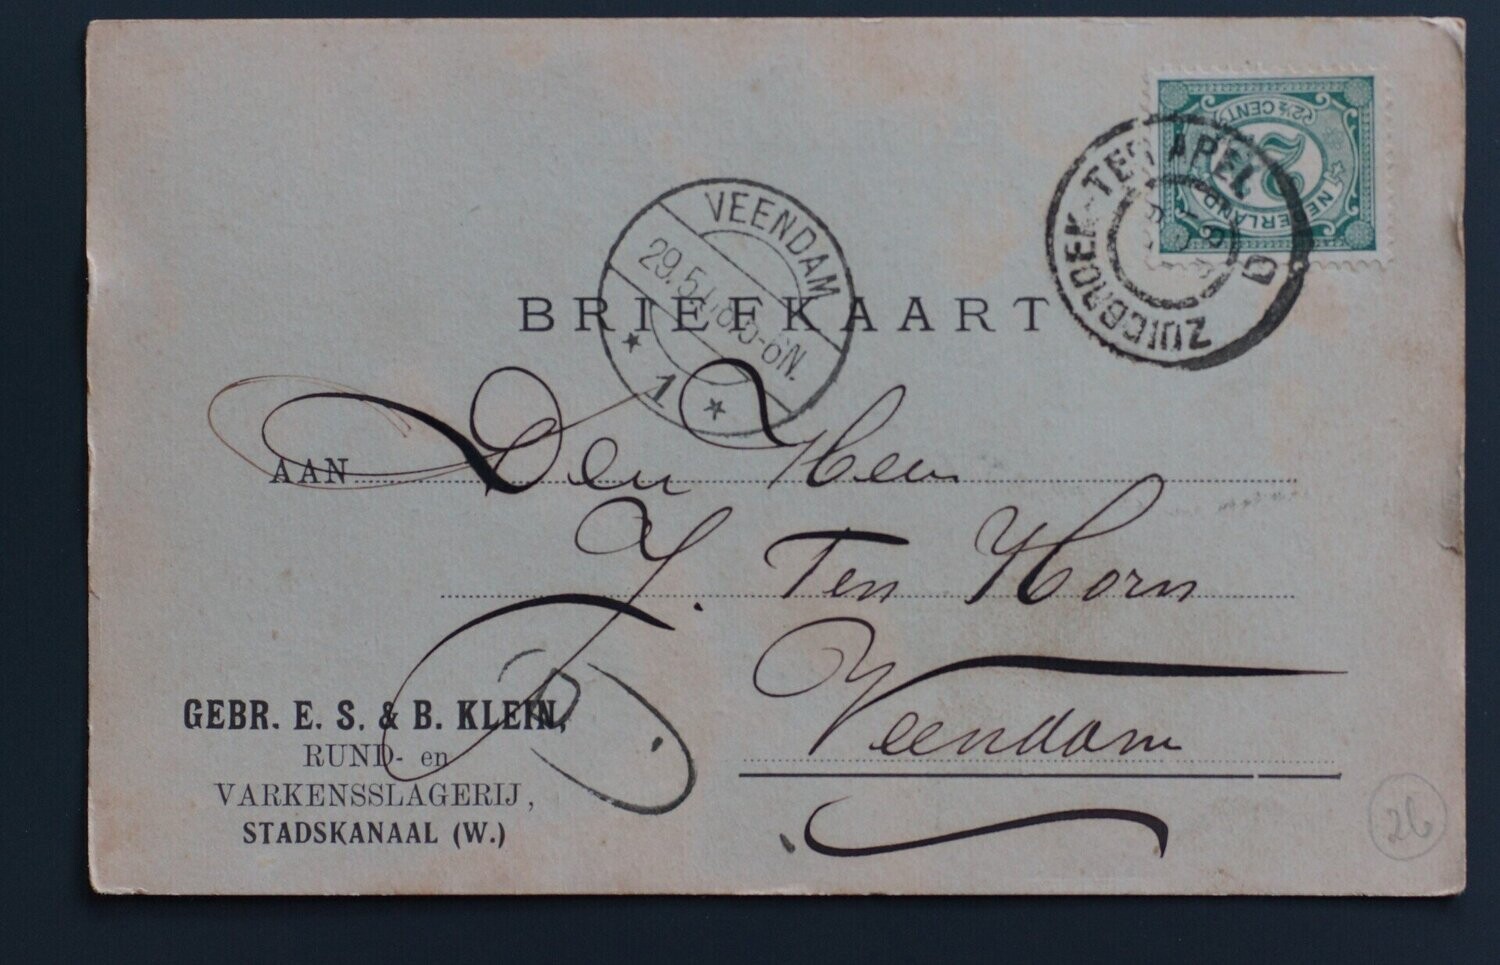 2½ CENT
2½
NEDERLAND
ZUIDBROEK-TER APEL
D
VEENDAM
29.5
5-6N.
1
BRIEFKAART
AAN Den Heer
J. Ten Horn
Veendam
GEBR. E. S. & B. KLEIN,
RUND- en
VARKENSSLAGERIJ,
STADSKANAAL (W.)
26